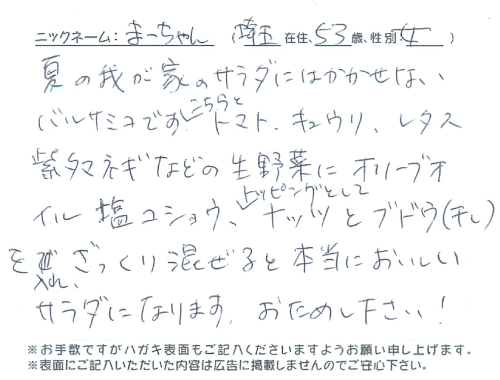 ニックネーム：まっちゃん （埼玉 在住、53歳、性別 女 ）
夏の我が家のサラダにはかかせない
バルサミコです。こちらと トマト、キュウリ、レタス
紫タマネギなどの生野菜に オリーブオ
イル 塩コショウ、トッピングとして ナッツとブドウ(干し)
を入れ、ざっくり混ぜると本当においしい
サラダになります。おためし下さい！
※お手数ですがハガキ表面もご記入くださいますようお願い申し上げます。
※表面にご記入いただいた内容は広告に掲載しませんのでご安心下さい。